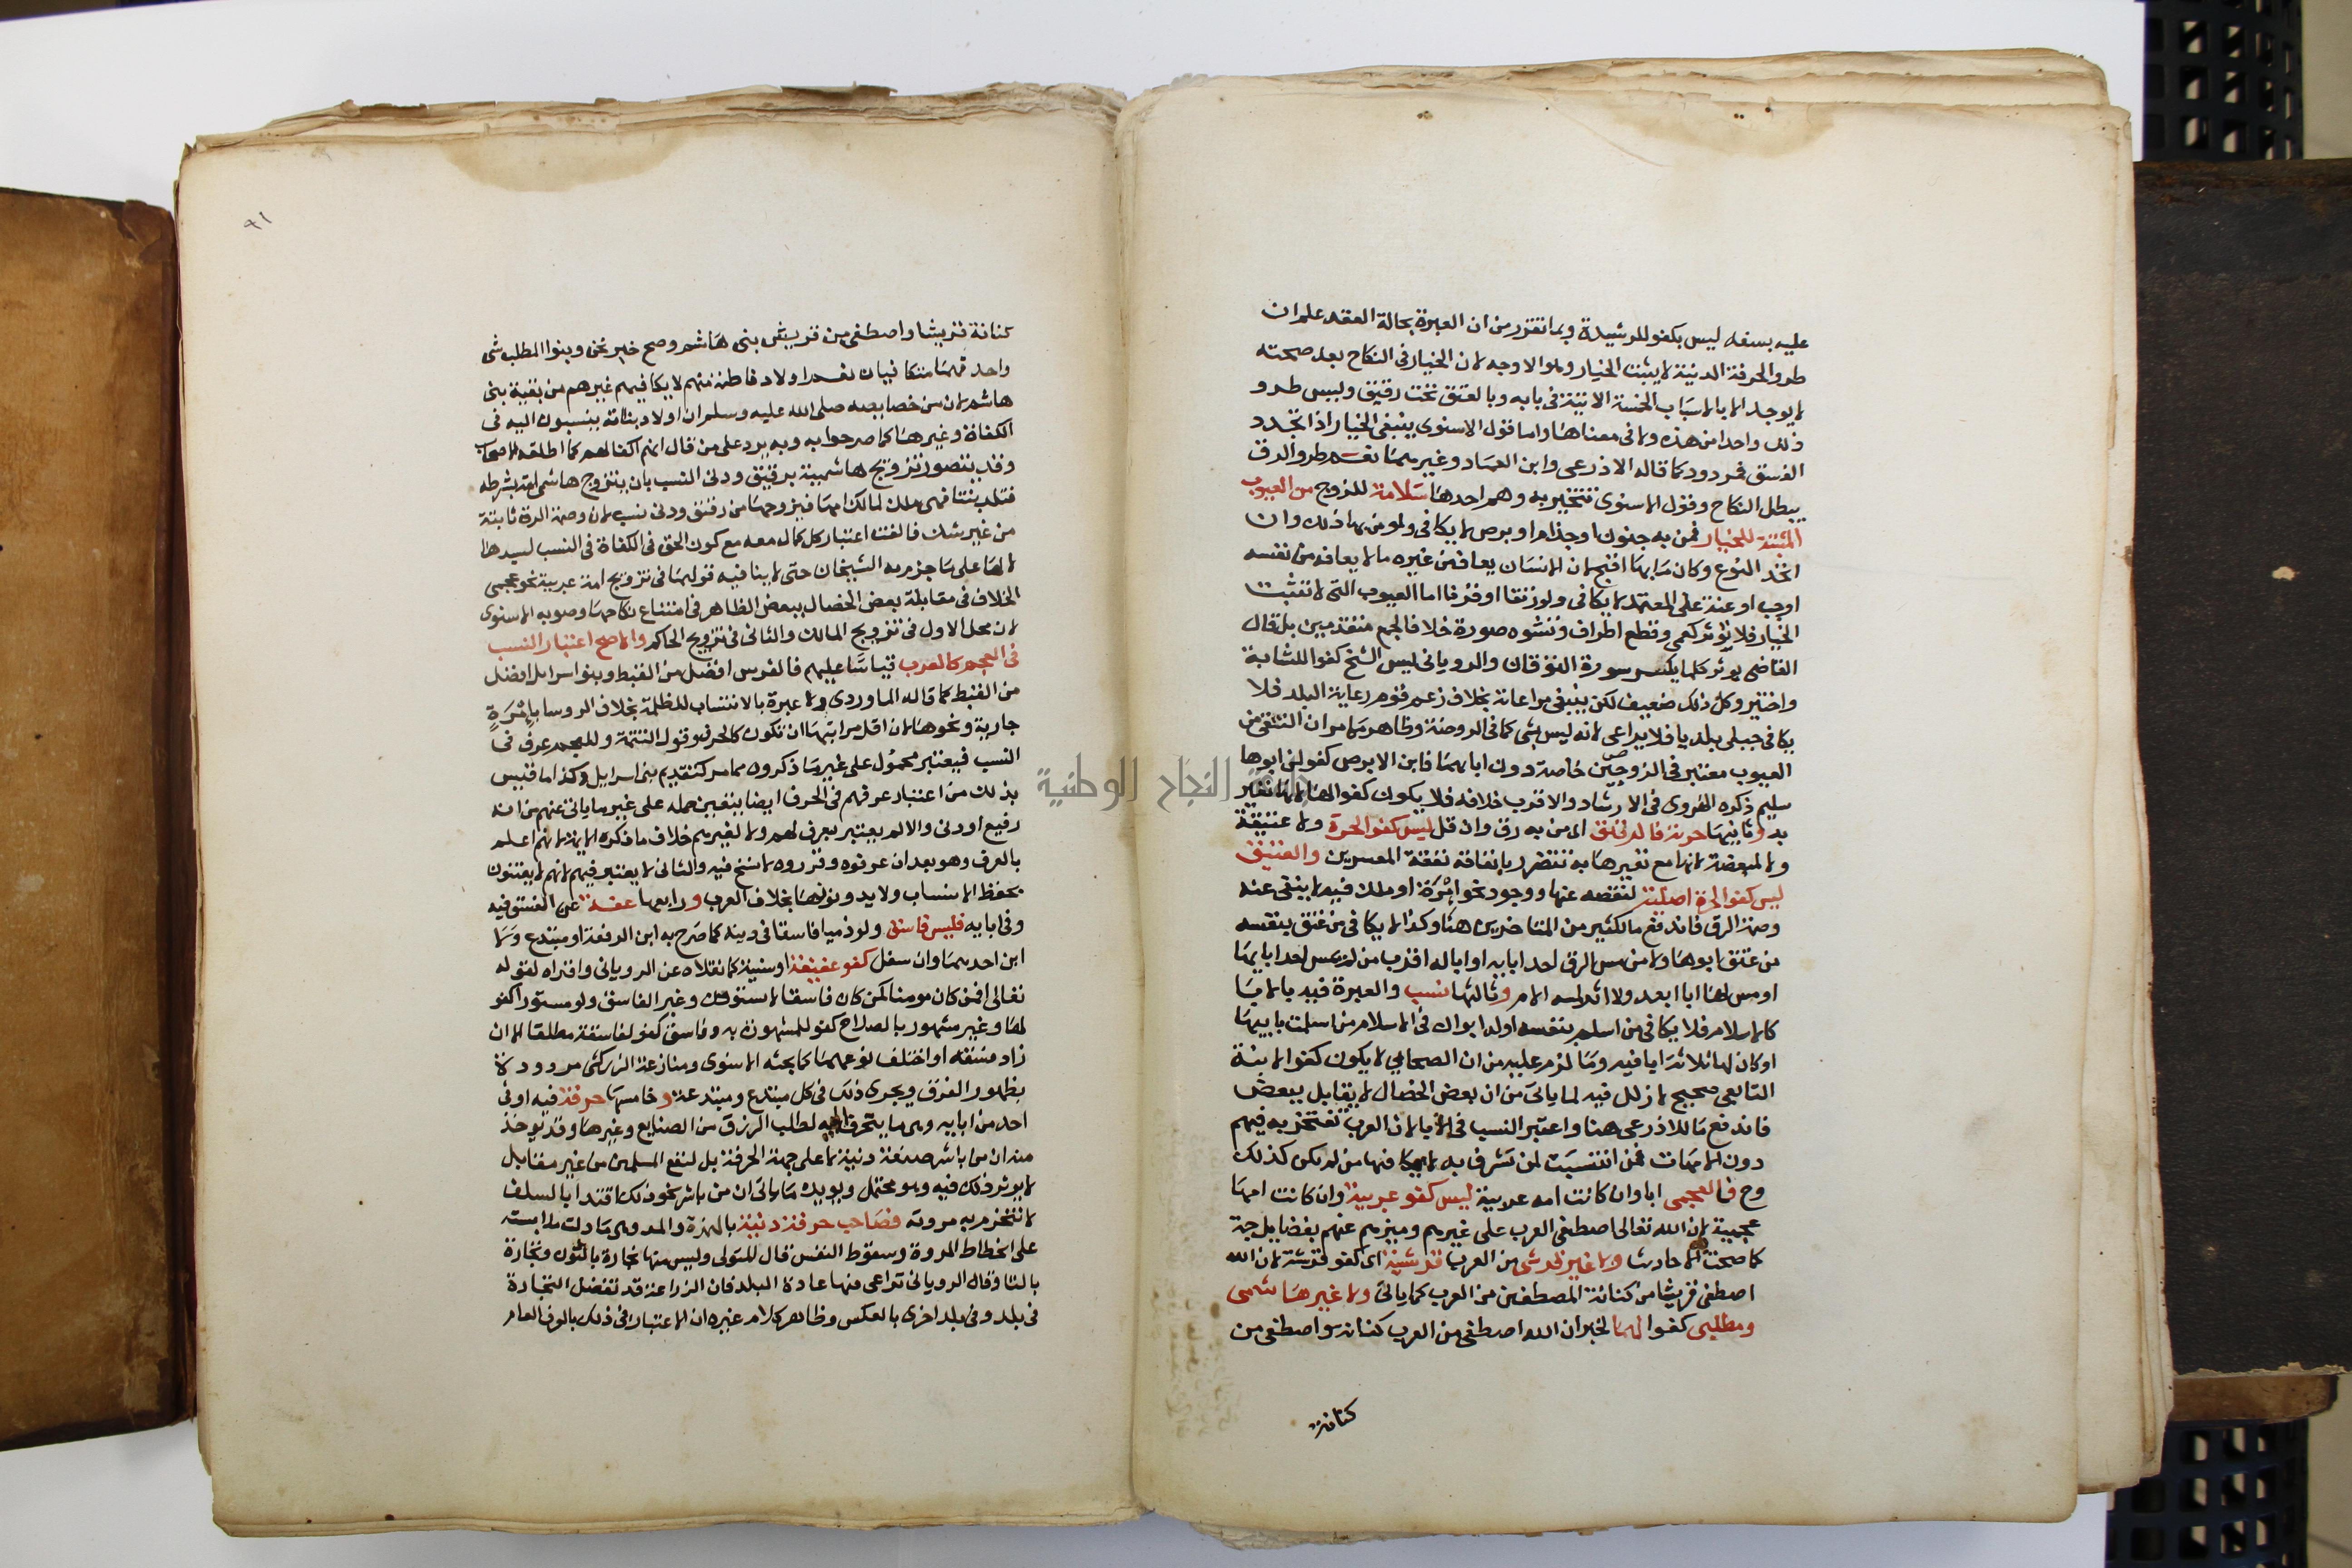 عليه بسفه ليس بكفو للرشيدة وبما تقرر من ان العبرة بحالة العقد علم ان
طرو الحرفة الدنيئة لا يثبت الخيار وهو الاوجه لان الخيار في النكاح بعد صحته
لا يوجد الا بالاسباب الخمسة الاتية في بابه وبالعتق تحت رقيق وليس طرو
ذلك واحدا من هذه ولا في معناها واما قول الاسنوي ينبغي الخيار اذا تجدد
الفسق فمردود كما قاله الاذرعي وابن العماد وغيرهما نعم طرو الرق
يبطل النكاح وقول الاسنوي تتخير به وهم احدها سلامة للزوج من العيوب
المثبتة للخيار فمن به جنون او جذام او برص لا يكافي ولو من بها ذلك وان
اتحد النوع وكان ما بها اقبح لان الانسان يعاف من غيره ما لا يعافه من نفسه
اوجب او عنة على المعتمد لا يكافي ولو رتقا او قرنا اما العيوب التي لا تثبت
الخيار فلا تؤثر كعمي وقطع اطراف وتشوه صورة خلافا لجمع متقدمين بل قال
القاضي يوثر كلما يكسر سورة التوقان والروياني ليس الشيخ كفوا للشابة
واختير وكل ذلك ضعيف لكن ينبغي مراعاته بخلاف زعم قوم رعاية البلد فلا
يكافي جبلي بلديا فلا يراعى لانه ليس بشي كما في الروضة وظاهر ما مر ان التنقي من
العيوب معتبر في الزوجين خاصة دون ابايهما فابن الابرص كفو لمن ابوها
سليم ذكره الهروي في الارشاد والاقرب خلافه فلا يكون كفوا لها لانها تتعير
به وثانيها حرية فالرقيق اي من به رق وان قل ليس كفو الحرة ولا عتيقة
ولا لمبعضة لانها مع تعيرها به تتضرر بانفاقه نفقة المعسرين والعتيق
ليس كفو الحرة اصلية لنقصه عنها ووجود نحو امرة او ملك فيه لا ينفي عنه
وصمة الرق فاندفع ما لكثير من المتاخرين هنا وكذا لا يكافي من عتق بنفسه
من عتق ابوها ولا من مس الرق احد ابايه او ابا له اقرب من لم يمس احد ابايها
او مس لها ابا ابعد ولا اثر لمسه الام وثالثها نسب والعبرة فيه بالابا
كالاسلام فلا يكافي من اسلم بنفسه او له ابوان في الاسلام من اسلمت بابيها
او كان لها ثلاثة ابا فيه وما لزم عليه من ان الصحابي لا يكون كفو الابنة
التابعي صحيح لا زلل فيه لما ياتي من ان بعض الخصال لا يقابل ببعض
فاندفع ما للاذرعي هنا واعتبر النسب في الابا لان العرب تفتخر به فيهم
دون الامهات فمن انتسبت لمن تشرف به لا يكافئها من لم يكن كذلك
وح فالعجمي ابا وان كانت امه عربية ليس كفو عربية وان كانت امها
عجمية لان الله تعالى اصطفى العرب على غيرهم وميزهم عنهم بفضايل جمة
كما صحت به الاحاديث ولا غير قرشي من العرب قرشية اي كفو قرشية لان الله
اصطفى قريشا من كنانة المصطفين من العرب كما ياتي ولا غير هاشمي
ومطلبي كفوا لهما لخبر ان الله اصطفى من العرب كنانة واصطفى من
كنانة
٩١
كنانة قريشا واصطفى من قريش بني هاشم وصح خبر نحن وبنوا المطلب شي
واحد فهما متكافيان نعم اولاد فاطمة منهم لا يكافيهم غيرهم من بقية بني
هاشم لان من خصايصه صلى الله عليه وسلم ان اولاد بناته ينسبون اليه في
الكفاة وغيرها كما صرحوا به وبه يرد على من قال انهم اكفا لهم كما اطلقه الاصحاب
وقد يتصور تزويج هاشمية برقيق ودني النسب بان يتزوج هاشمي امة بشرطه
فتلد بنتا فهي ملك لمالك امها فيزوجها من رقيق ودني نسب لان وصمة الرق ثابتة
من غير شك فالغت اعتبار كل كمال معه مع كون الحق في الكفاة في النسب لسيدها
لا لها على ما جزم به الشيخان حتى لا ينافيه قولهما في تزويج امة عربية نحو عجمي
الخلاف في مقابلة بعض الخصال ببعض الظاهر في امتناع نكاحها وصوبه الاسنوي
لان محل الاول في تزويج المالك والثاني في تزويج الحاكم والاصح اعتبار النسب
في العجم كالعرب قياسا عليهم فالفرس افضل من القبط وبنو اسرايل افضل
من القبط كما قاله الماوردي ولا عبرة بالانتساب للظلمة بخلاف الروسا بامرة
جارية ونحوها لان اقل مراتبها ان تكون كالحرف وقول التتمة وللعجم عرف في
النسب فيعتبر محمول على غير ما ذكروه مما مر كتقديم بني اسرايل وكذا ما قيس
بذلك من اعتبار عرفهم في الحرف ايضا يتعين حمله على غير ما ياتي عنهم من انه
رفيع او دني والا لم يعتبر بعرف لهم ولا لغيرهم خلاف ما ذكره الايمة لانهم اعلم
بالعرف وهو بعد ان عرفوه وقرروه لا نسخ فيه والثاني لا يعتبر فيهم لانهم لا يعتنون
بحفظ الانساب ولا يدونونها بخلاف العرب ورابعها عفة عن الفسق فيه
وفي ابايه فليس فاسق ولو ذميا فاسقا في دينه كما صرح به ابن الرفعة او مبتدع ولا
ابن احدهما وان سفل كفو عفيفة او سنية كما نقلاه عن الروياني واقراه لقوله
تعالى افمن كان مومنا كمن كان فاسقا لا يستوون وغير الفاسق ولو مستورا كفو
لها وغير مشهور بالصلاح كفو للمشهورة به وفاسق كفو لفاسقة مطلقا الا ان
زاد فسقه او اختلف نوعهما كما بحثه الاسنوي ومنازعة الزركشي مردودة
بظهور الفرق ويجري ذلك في كل مبتدع ومبتدعة وخامسها حرفة فيه او في
احد من ابايه وهي ما يتحرف به لطلب الرزق من الصنايع وغيرها وقد يوخذ
منه ان من باشر صنعة دنية لا على جهة الحرفة بل لنفع المسلمين من غير مقابل
لا يوثر ذلك فيه وهو محتمل ويويده ما ياتي ان من باشر نحو ذلك اقتدا بالسلف
لا تنخرم به مروته فصاحب حرفة دنيئة بالهمزة والمد وهي ما دلت ملابسته
على انحطاط المروة وسقوط النفس قال المتولي وليس منها نجارة بالنون وتجارة
بالتا وقال الروياني تراعى فيها عادة البلد فان الزراعة قد تفضل التجارة
في بلد وفي بلد اخرى بالعكس وظاهر كلام غيره ان الاعتبار في ذلك بالعرف العام
جامعة النجاح الوطنية